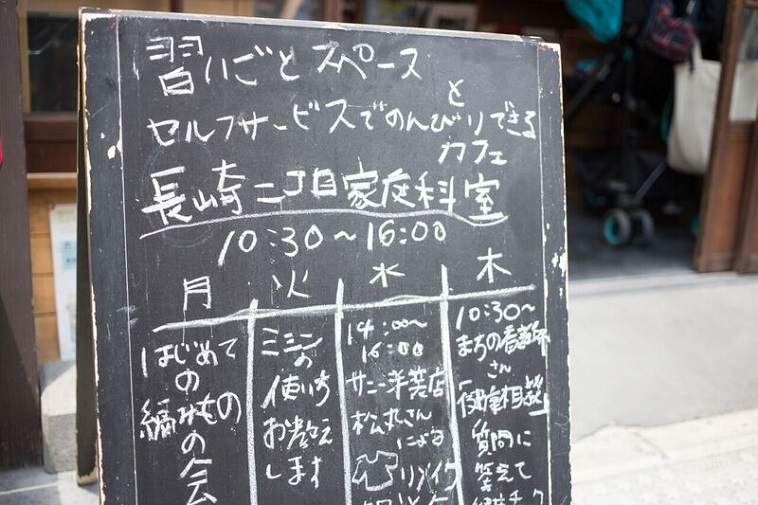 習いごとスペース
と
セルフサービスでのんびりできる
カフェ
長崎二丁目家庭科室
10:30〜16:00
月
はじめて
の
編みもの
の会
火
ミシン
の
使い方
お教え
します
水
14:00〜
16:00
サニー洋装店
松丸さん
による
リメイク
木
10:30〜
まちの看護師
さん
「保健室相談」
質問に
答えて